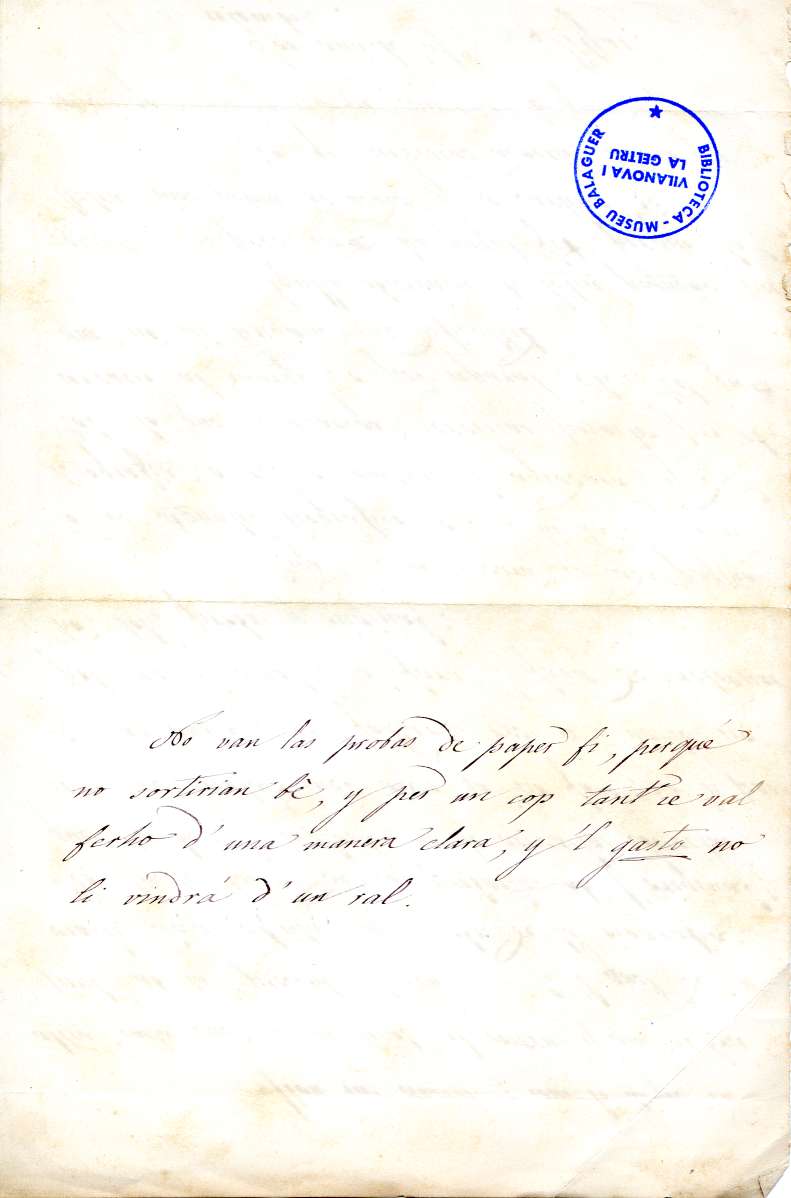 BIBLIOTECA - MUSEU BALAGUER
VILANOVA I
LA GELTRU
No van las probas de paper fi, perqué
no sortirian bê, y per un cop tant se val
ferho d' una manera clara, y 'l gasto no
li vindrá d' un ral.